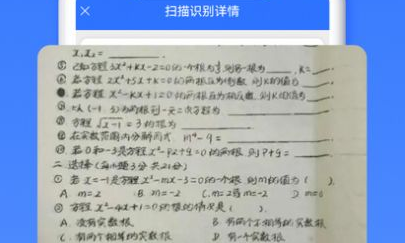 扫描识别详情
x₁x₂=
⑤ 已知方程3x²+kx-2=0的一个根为 则另一根为 , k=
⑥ 若方程2x²+5x+k=0的两根互为倒数, 则k的值为
若方程x²-kx+12=0的两根互为相反数, 则k的值为
以(-1, 5)为两根的一元二次方程为
方程√x-1=3的根为
⑩ 在实数范围内分解因式 m⁴-9=
若0和-3是方程x²-px+q=0的两根, 则p+q=
二. 选择(每小题3分 共21分)
① 若x=-1是方程x²-mx-3=0的一个根, 则m的值为( ).
A. m=2 B. m=-2 C. m=2或m=-2 D. m=
② 方程x²-4x+1=0的根的情况是( ).
A. 没有实数根 B. 有两个不相等的实数根
C. 有两个相等的实数根 D. 有一个实数根